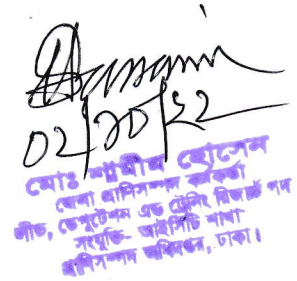 ০২/১০/২২
মোঃ শামীম হোসেন
জেলা প্রাণিসম্পদ কর্মকর্তা
লীভ, ডেপুটেশন এন্ড ট্রেনিং রিজার্ভ পদ
সংযুক্তি- আইসিটি শাখা
প্রাণিসম্পদ অধিদপ্তর, ঢাকা।